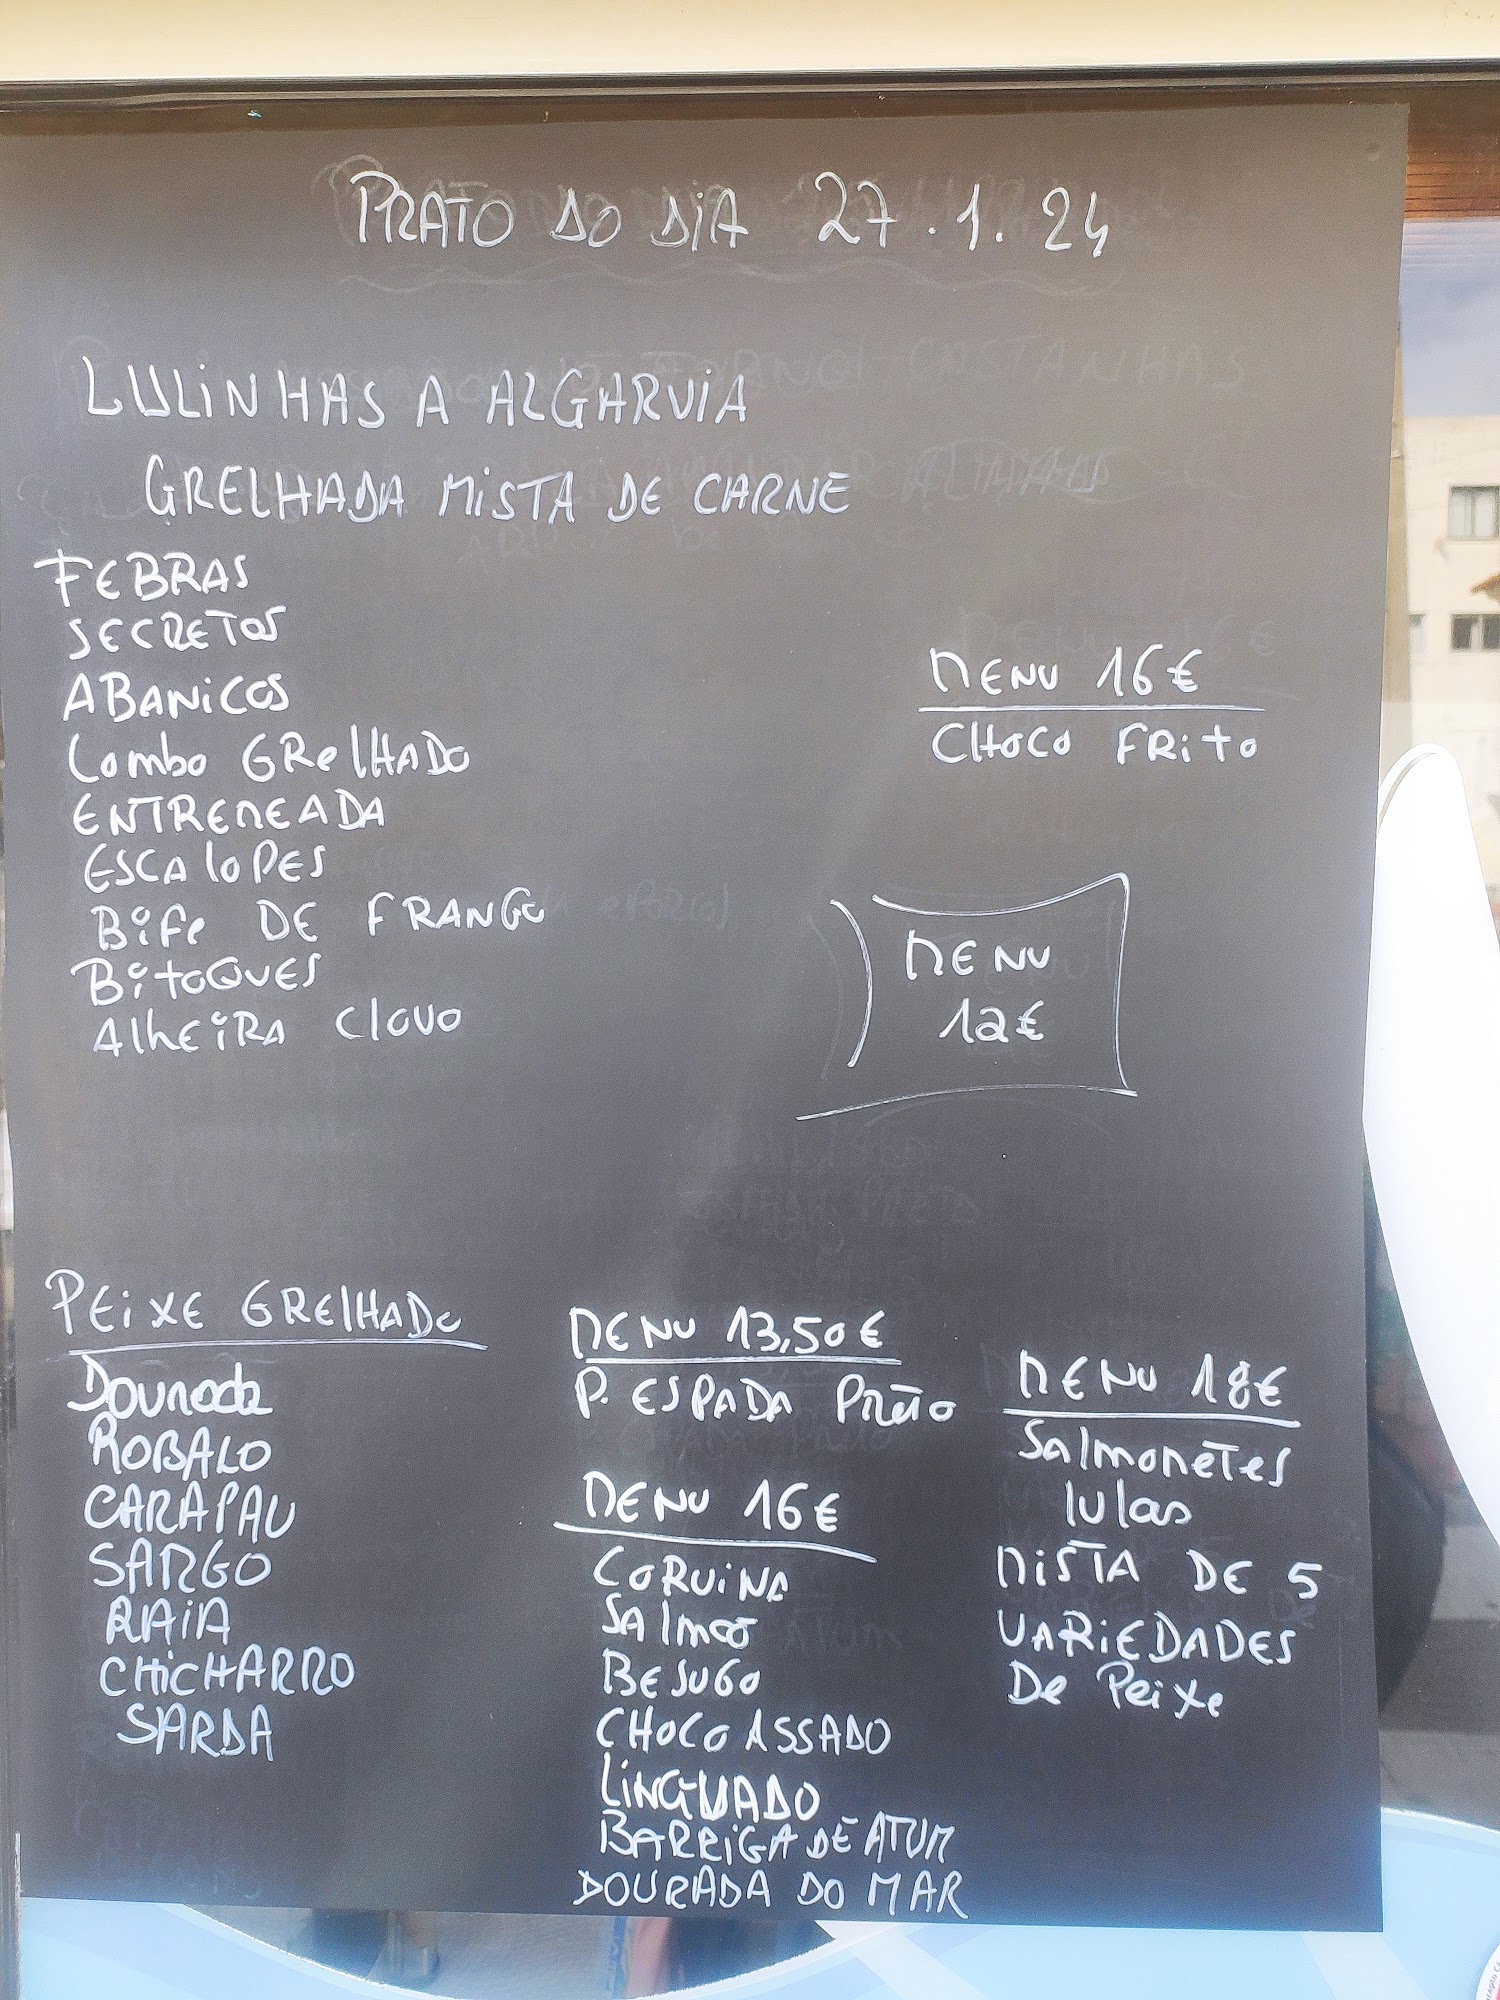 PRATO DO DIA 27.1.24
LULINHAS A ALGARVIA
GRELHADA MISTA DE CARNE
FEBRAS
SECRETOS
ABANICOS
Lombo GRelHADO
ENTREMEADA
ESCAlOPES
BifE DE FRANGO
BitoQUES
AlhEiRA C/OVO
MENU 16€
CHOCO FRito
MENU
12€
PEiXE GRElHADO
Dourada
ROBALO
CARAPAU
SARGO
RAiA
CHiCHARRO
SARDA
MENU 13,50€
P. ESPADA PREtO
MENU 16€
CORVINA
SAlmão
BESUGO
CHOCO ASSADO
LiNGUADO
BARRiGA DE ATUM
DOURADA DO MAR
MENU 18€
SAlmoneTES
lulas
MiSTA DE 5
VARiEDADES
De Peixe